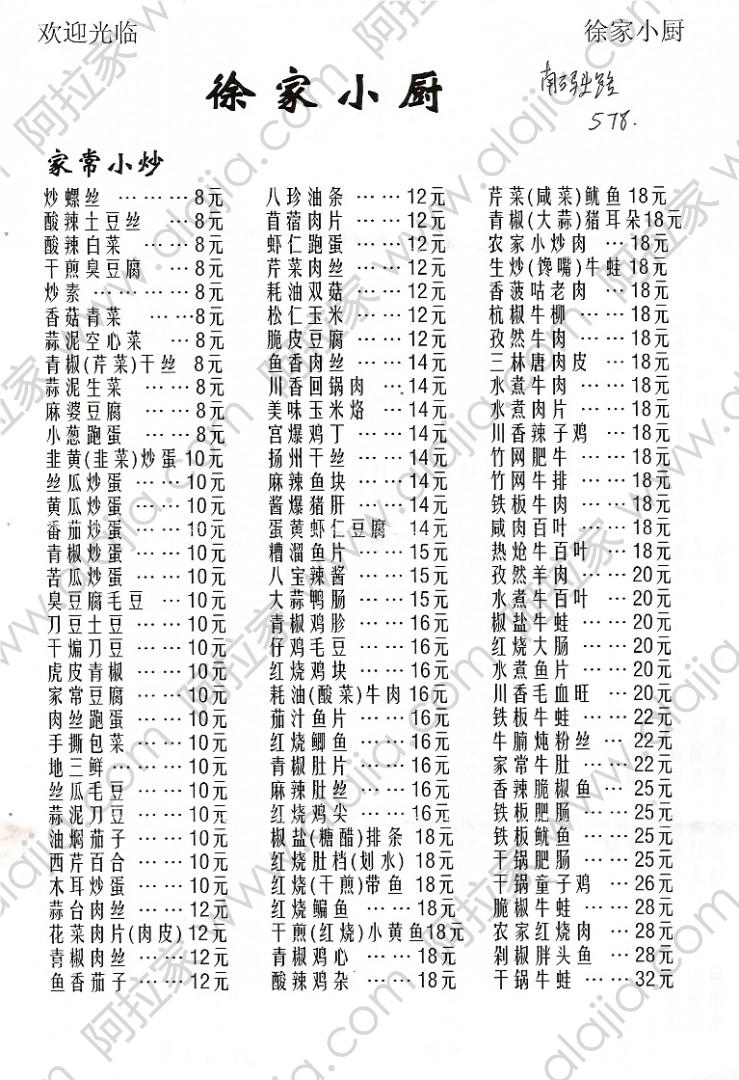 欢迎光临
徐家小厨
徐家小厨
南码头路
578.
家常小炒
炒螺丝 ………8元
酸辣土豆丝 …8元
酸辣白菜 ……8元
干煎臭豆腐 …8元
炒素 …………8元
香菇青菜 ……8元
蒜泥空心菜 …8元
青椒(芹菜)干丝 8元
蒜泥生菜 ……8元
麻婆豆腐 ……8元
小葱跑蛋 ……8元
韭黄(韭菜)炒蛋 10元
丝瓜炒蛋 ……10元
黄瓜炒蛋 ……10元
番茄炒蛋 ……10元
青椒炒蛋 ……10元
苦瓜炒蛋 ……10元
臭豆腐毛豆 …10元
刀豆土豆 ……10元
干煸刀豆 ……10元
虎皮青椒 ……10元
家常豆腐 ……10元
肉丝跑蛋 ……10元
手撕包菜 ……10元
地三鲜 ………10元
丝瓜毛豆 ……10元
蒜泥刀豆 ……10元
油焖茄子 ……10元
西芹百合 ……10元
木耳炒蛋 ……10元
蒜台肉丝 ……12元
花菜肉片(肉皮) 12元
青椒肉丝 ……12元
鱼香茄子 ……12元
八珍油条 ……12元
苜蓿肉片 ……12元
虾仁跑蛋 ……12元
芹菜肉丝 ……12元
耗油双菇 ……12元
松仁玉米 ……12元
脆皮豆腐 ……12元
鱼香肉丝 ……14元
川香回锅肉 …14元
美味玉米烙 …14元
宫爆鸡丁 ……14元
扬州干丝 ……14元
麻辣鱼块 ……14元
酱爆猪肝 ……14元
蛋黄虾仁豆腐 14元
糟溜鱼片 ……15元
八宝辣酱 ……15元
大蒜鸭肠 ……15元
青椒鸡胗 ……16元
仔鸡毛豆 ……16元
红烧鸡块 ……16元
耗油(酸菜)牛肉 16元
茄汁鱼片 ……16元
红烧鲫鱼 ……16元
青椒肚片 ……16元
麻辣肚丝 ……16元
红烧鸡尖 ……16元
椒盐(糖醋)排条 18元
红烧肚档(划水) 18元
红烧(干煎)带鱼 18元
红烧鳊鱼 ……18元
干煎(红烧)小黄鱼18元
青椒鸡心 ……18元
酸辣鸡杂 ……18元
芹菜(咸菜)鱿鱼 18元
青椒(大蒜)猪耳朵18元
农家小炒肉 …18元
生炒(馋嘴)牛蛙 18元
香菠咕老肉 …18元
杭椒牛柳 ……18元
孜然牛肉 ……18元
三林唐肉皮 …18元
水煮牛肉 ……18元
水煮肉片 ……18元
川香辣子鸡 …18元
竹网肥牛 ……18元
竹网牛排 ……18元
铁板牛肉 ……18元
咸肉百叶 ……18元
热炝牛百叶 …18元
孜然羊肉 ……20元
水煮牛百叶 …20元
椒盐牛蛙 ……20元
红烧大肠 ……20元
水煮鱼片 ……20元
川香毛血旺 …20元
铁板牛蛙 ……22元
牛腩炖粉丝 …22元
家常牛肚 ……22元
香辣脆椒鱼 …25元
铁板肥肠 ……25元
铁板鱿鱼 ……25元
干锅肥肠 ……25元
干锅童子鸡 …26元
脆椒牛蛙 ……28元
农家红烧肉 …28元
剁椒胖头鱼 …28元
干锅牛蛙 ……32元
阿拉家 www.alajia.com